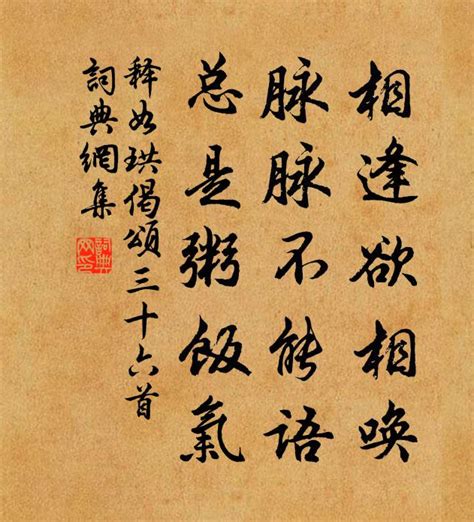 相逢欲相唤
脉脉不能语
总是粥饭氣
释如珙偈頌三十六首
詞典網集